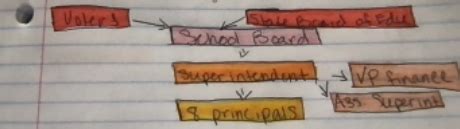 Voters
State Board of Educ
School Board
Superintendent
VP finance
Ass. Superint
8 principals